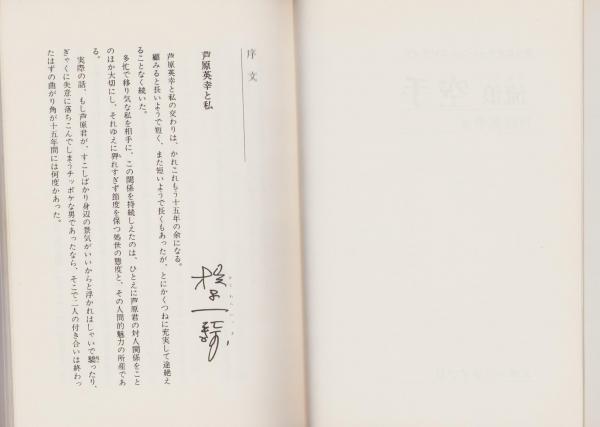 序文
芦原英幸と私
梶原一騎
芦原英幸と私の交わりは、かれこれもう十五年の余になる。
顧みると長いようで短く、また短いようで長くもあったが、とにかくつねに充実して途絶え
ることなく続いた。
多忙で移り気な私を相手に、この関係を持続しえたのは、ひとえに芦原君の対人関係をこと
のほか大切にし、それゆえに狎れすぎず節度を保つ処世の態度と、その人間的魅力の所産であ
る。
実際の話、もし芦原君が、すこしばかり身辺の景気がいいからと浮かれはしゃいで驕ったり、
ぎゃくに失意に落ちこんでしまうチッポケな男であったなら、そこで二人の付き合いは終わっ
たはずの曲がり角が十五年間には何度かあった。
空手